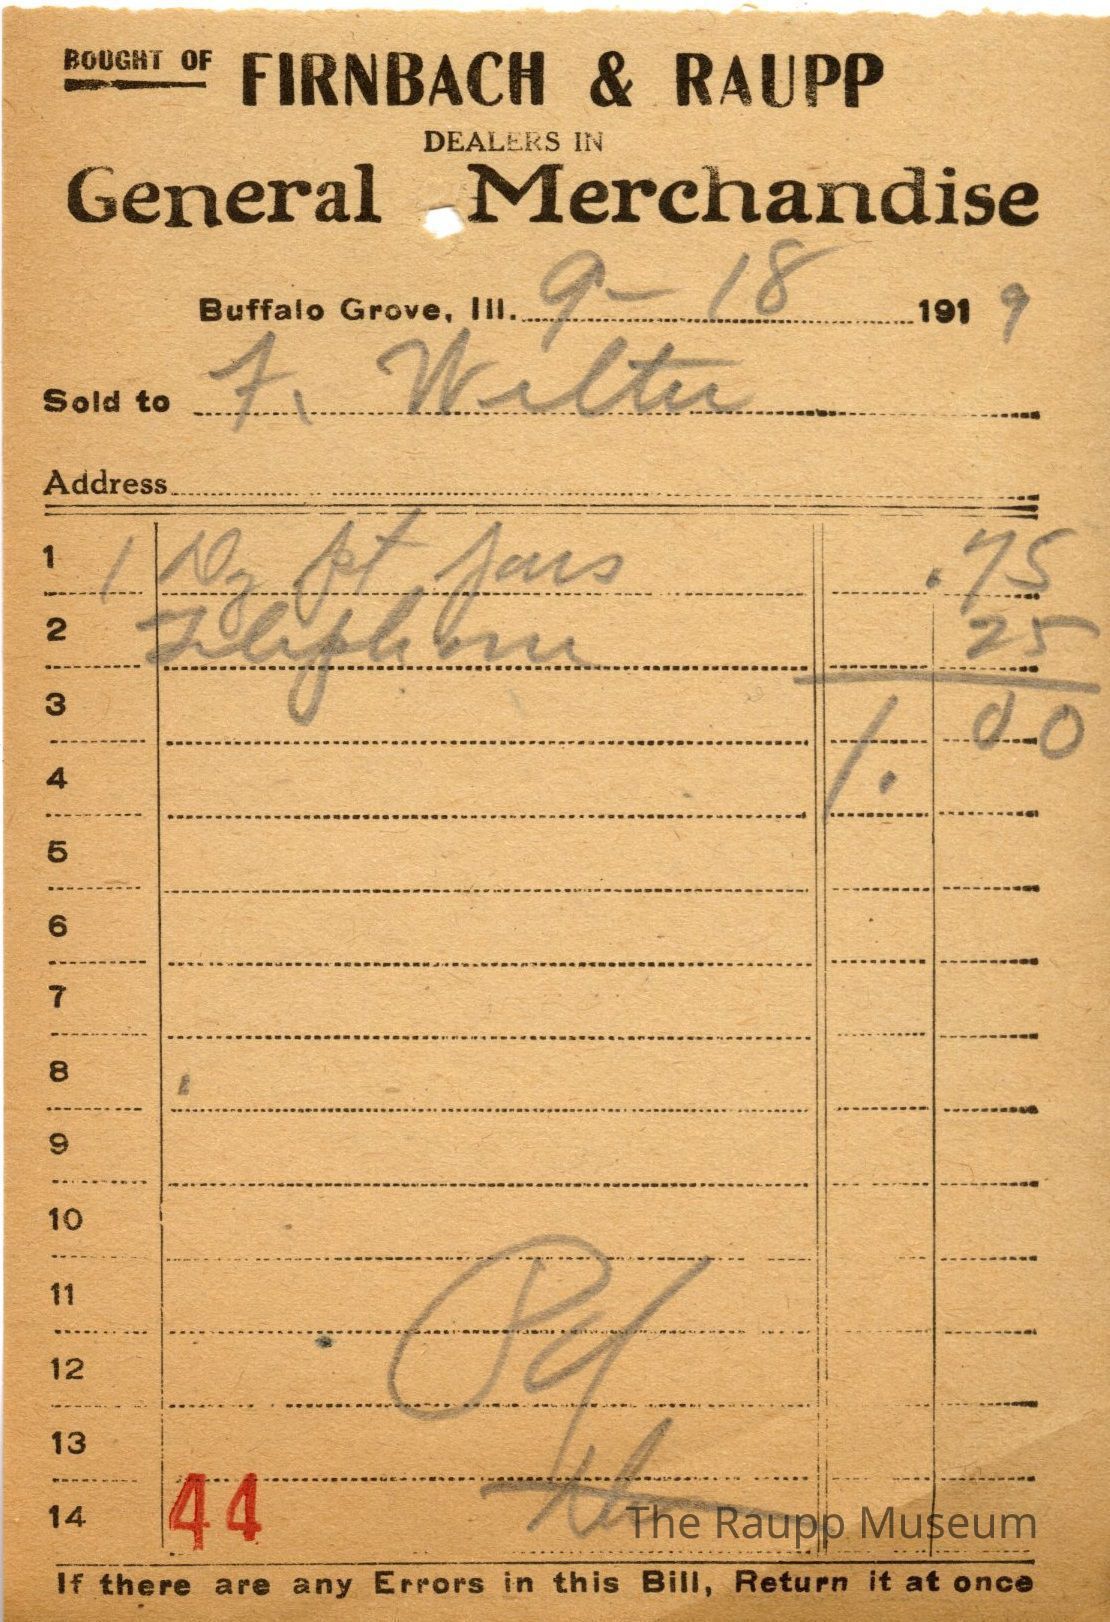 BOUGHT OF FIRNBACH & RAUPP
DEALERS IN
General Merchandise
Buffalo Grove, Ill. 9-18 1919
Sold to F. Welter
Address
1 1 Dz pt jars .75
2 Telephone 25
3 1.00
4
5
6
7
8
9
10
11
12
13
14 44
The Raupp Museum
If there are any Errors in this Bill, Return it at once